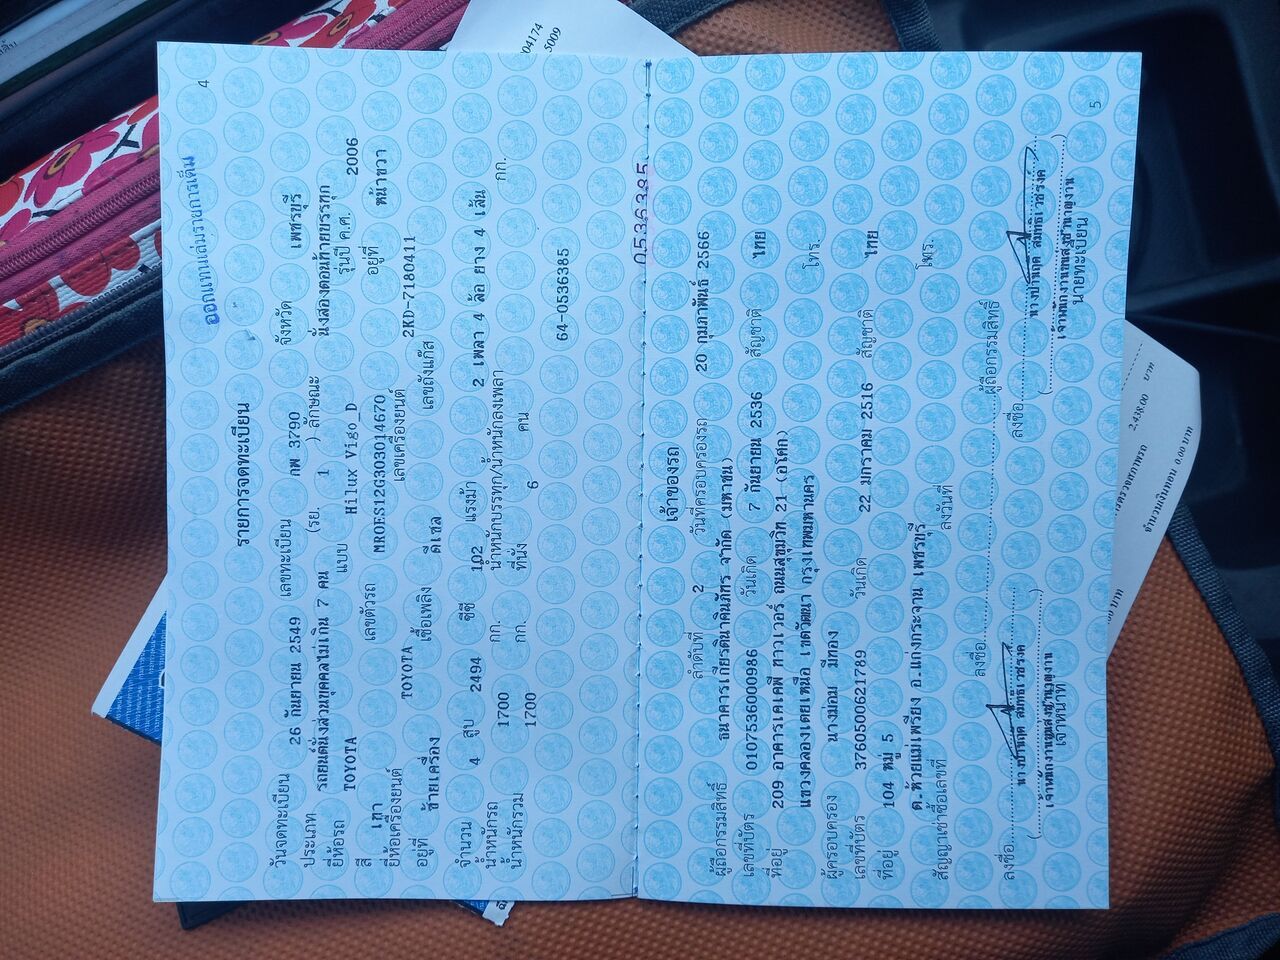 4
ออกแทนเล่มรายการเต็ม
รายการจดทะเบียน
วันจดทะเบียน 26 กันยายน 2549 เลขทะเบียน กพ 3790 จังหวัด เพชรบุรี
ประเภท รถยนต์นั่งส่วนบุคคลไม่เกิน 7 คน (รย. 1 ) ลักษณะ นั่งสองตอนท้ายบรรทุก
ยี่ห้อรถ TOYOTA แบบ Hilux Vigo_D รุ่นปี ค.ศ. 2006
สี เทา เลขตัวรถ MROES12G303014670 อยู่ที่ หน้าขวา
ยี่ห้อเครื่องยนต์ TOYOTA เลขเครื่องยนต์ 2KD-7180411
อยู่ที่ ซ้ายเครื่อง เชื้อเพลิง ดีเซล เลขถังแก๊ส
จำนวน 4 สูบ 2494 ซีซี 102 แรงม้า 2 เพลา 4 ล้อ ยาง 4 เส้น
น้ำหนักรถ 1700 กก. น้ำหนักบรรทุก/น้ำหนักลงเพลา กก.
น้ำหนักรวม 1700 กก. ที่นั่ง 6 คน
64-0536385
0536385
5
เจ้าของรถ
ลำดับที่ 2 วันที่ครอบครองรถ 20 กุมภาพันธ์ 2566
ผู้ถือกรรมสิทธิ์ ธนาคารเกียรตินาคินภัทร จำกัด (มหาชน)
เลขที่บัตร 0107536000986 วันเกิด 7 กันยายน 2536 สัญชาติ ไทย
ที่อยู่ 209 อาคารเคเคพี ทาวเวอร์ ถนนสุขุมวิท 21 (อโศก) โทร.
แขวงคลองเตยเหนือ เขตวัฒนา กรุงเทพมหานคร
ผู้ครอบครอง นางม่อม มีทอง
เลขที่บัตร 3760500621789 วันเกิด 22 มกราคม 2516 สัญชาติ ไทย
ที่อยู่ 104 หมู่ 5 โทร.
ต.ห้วยแม่เพรียง อ.แก่งกระจาน เพชรบุรี
สัญญาเช่าซื้อเลขที่ ลงวันที่
ลงชื่อ ผู้ถือกรรมสิทธิ์
ลงชื่อ ลงชื่อ
เจ้าพนักงานขนส่งชำนาญงาน เจ้าพนักงานขนส่งชำนาญงาน
เจ้าหน้าที่ นายทะเบียน
04174
5009
2,438.00 บาท
จำนวนเงินทอน 0.00 บาท